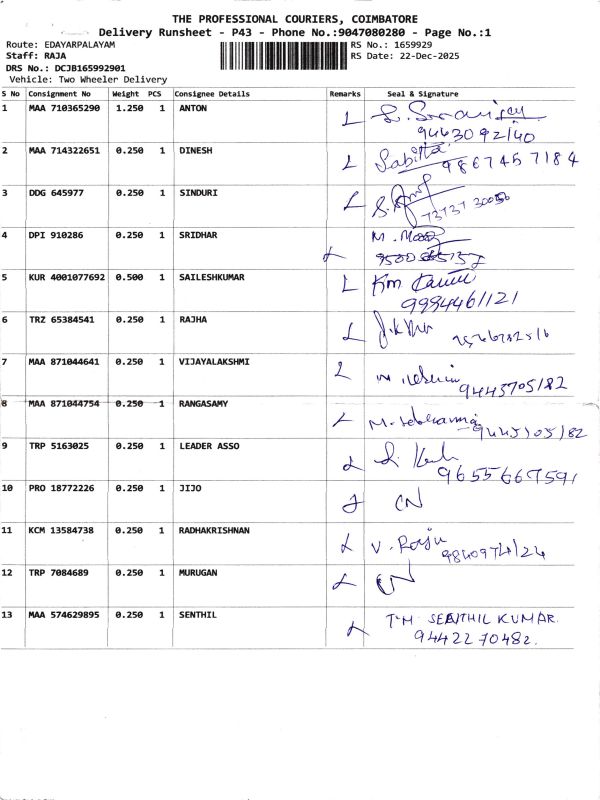 THE PROFESSIONAL COURIERS, COIMBATORE
Delivery Runsheet - P43 - Phone No.:9047080280 - Page No.:1
Route: EDAYARPALAYAM RS No.: 1659929
Staff: RAJA RS Date: 22-Dec-2025
DRS No.: DCJB165992901
Vehicle: Two Wheeler Delivery
S No Consignment No Weight PCS Consignee Details Remarks Seal & Signature
1 MAA 710365290 1.250 1 ANTON L
9443092140
2 MAA 714322651 0.250 1 DINESH L Sabitta 9867457184
3 DDG 645977 0.250 1 SINDURI L
73737 30050
4 DPI 910286 0.250 1 SRIDHAR L M.
5 KUR 4001077692 0.500 1 SAILESHKUMAR L Km
9994461121
6 TRZ 65384541 0.250 1 RAJHA L
7 MAA 871044641 0.250 1 VIJAYALAKSHMI L
9443705182
8 MAA 871044754 0.250 1 RANGASAMY L M.
9 TRP 5163025 0.250 1 LEADER ASSO L
9655667591
10 PRO 18772226 0.250 1 JIJO L CN
11 KCM 13584738 0.250 1 RADHAKRISHNAN L V. Raju
9840974124
12 TRP 7084689 0.250 1 MURUGAN L CN
13 MAA 574629895 0.250 1 SENTHIL L T.M SENTHIL KUMAR.
9442270482.